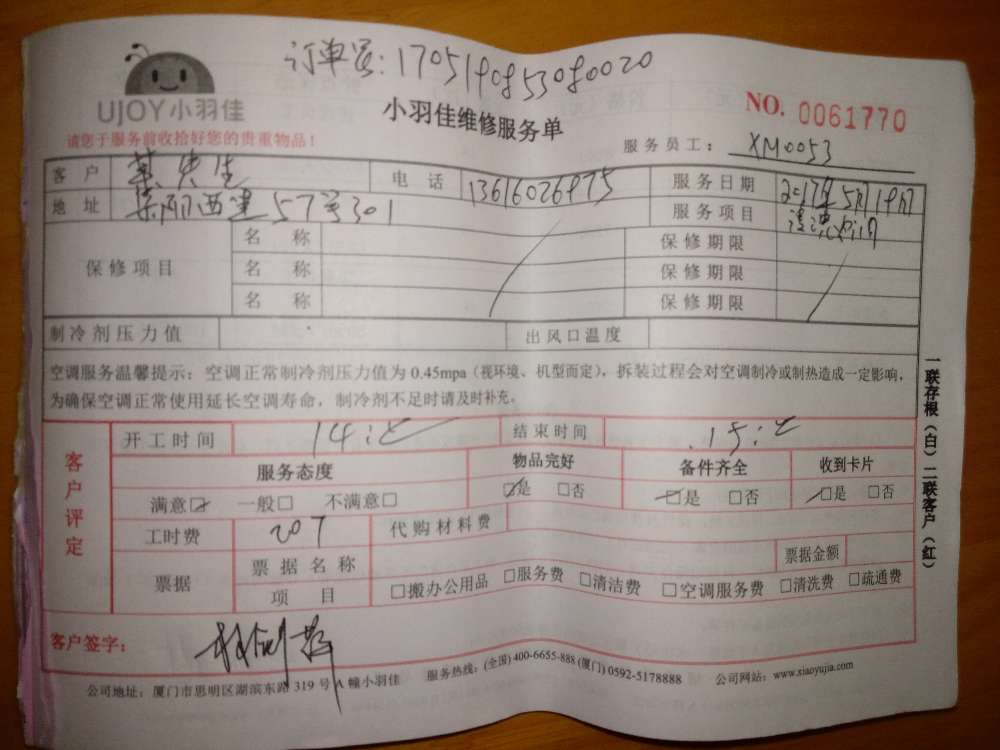 订单号:1705190853080020
UJOY小羽佳
小羽佳维修服务单
NO. 0061770
请您于服务前收拾好您的贵重物品!
服务员工: XM0053
客 户 先生 电 话 服务日期 2017年5月19日
地 址 57号301 服务项目 清洗
保修项目
名 称 保修期限
名 称 保修期限
名 称 保修期限
制冷剂压力值 出风口温度
空调服务温馨提示:空调正常制冷剂压力值为 0.45mpa(视环境、机型而定),拆装过程会对空调制冷或制热造成一定影响,
为确保空调正常使用延长空调寿命,制冷剂不足时请及时补充。
客户评定
开工时间 结束时间
服务态度 物品完好 备件齐全 收到卡片
满意☑ 一般□ 不满意□ ☑是 □否 ☑是 □否 ☑是 □否
工时费 207 代购材料费
票据 票据名称 票据金额
项 目 □搬办公用品 □服务费 □清洁费 □空调服务费 □清洗费 □疏通费
客户签字:
公司地址:厦门市思明区湖滨东路 319 号 A 幢小羽佳 服务热线:(全国) 400-6655-888 (厦门) 0592-5178888 公司网站:www.xiaoyujia.com
一联存根(白)二联客户(红)